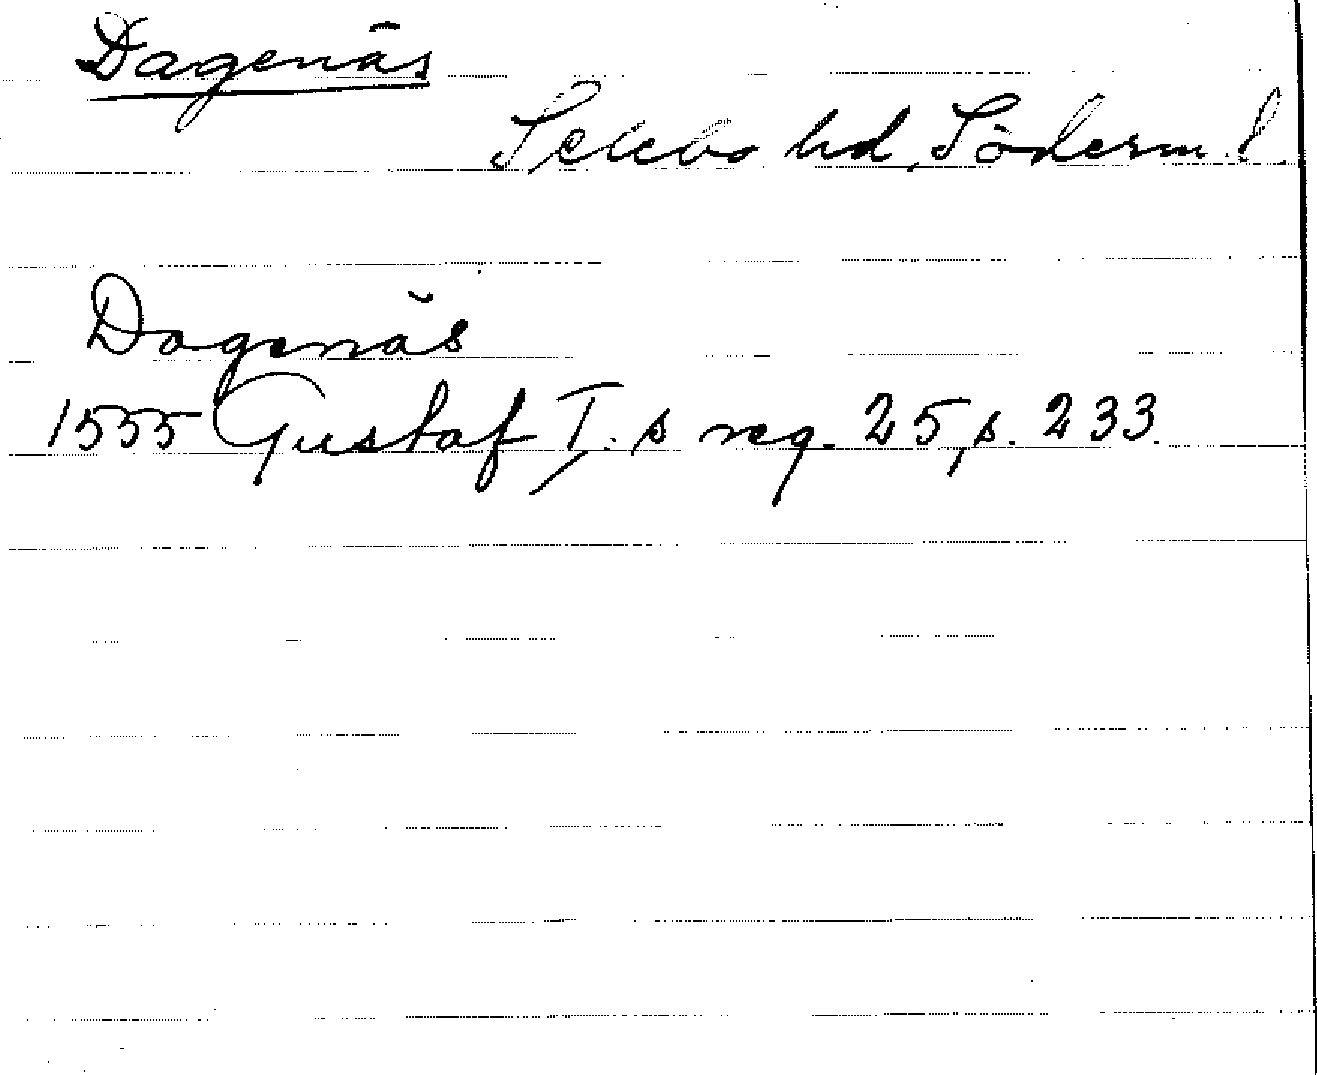 Dagenäs
Selebo hd, Söderm. l.
Dagenäs
1555 Gustaf I:s reg. 25, s. 233.